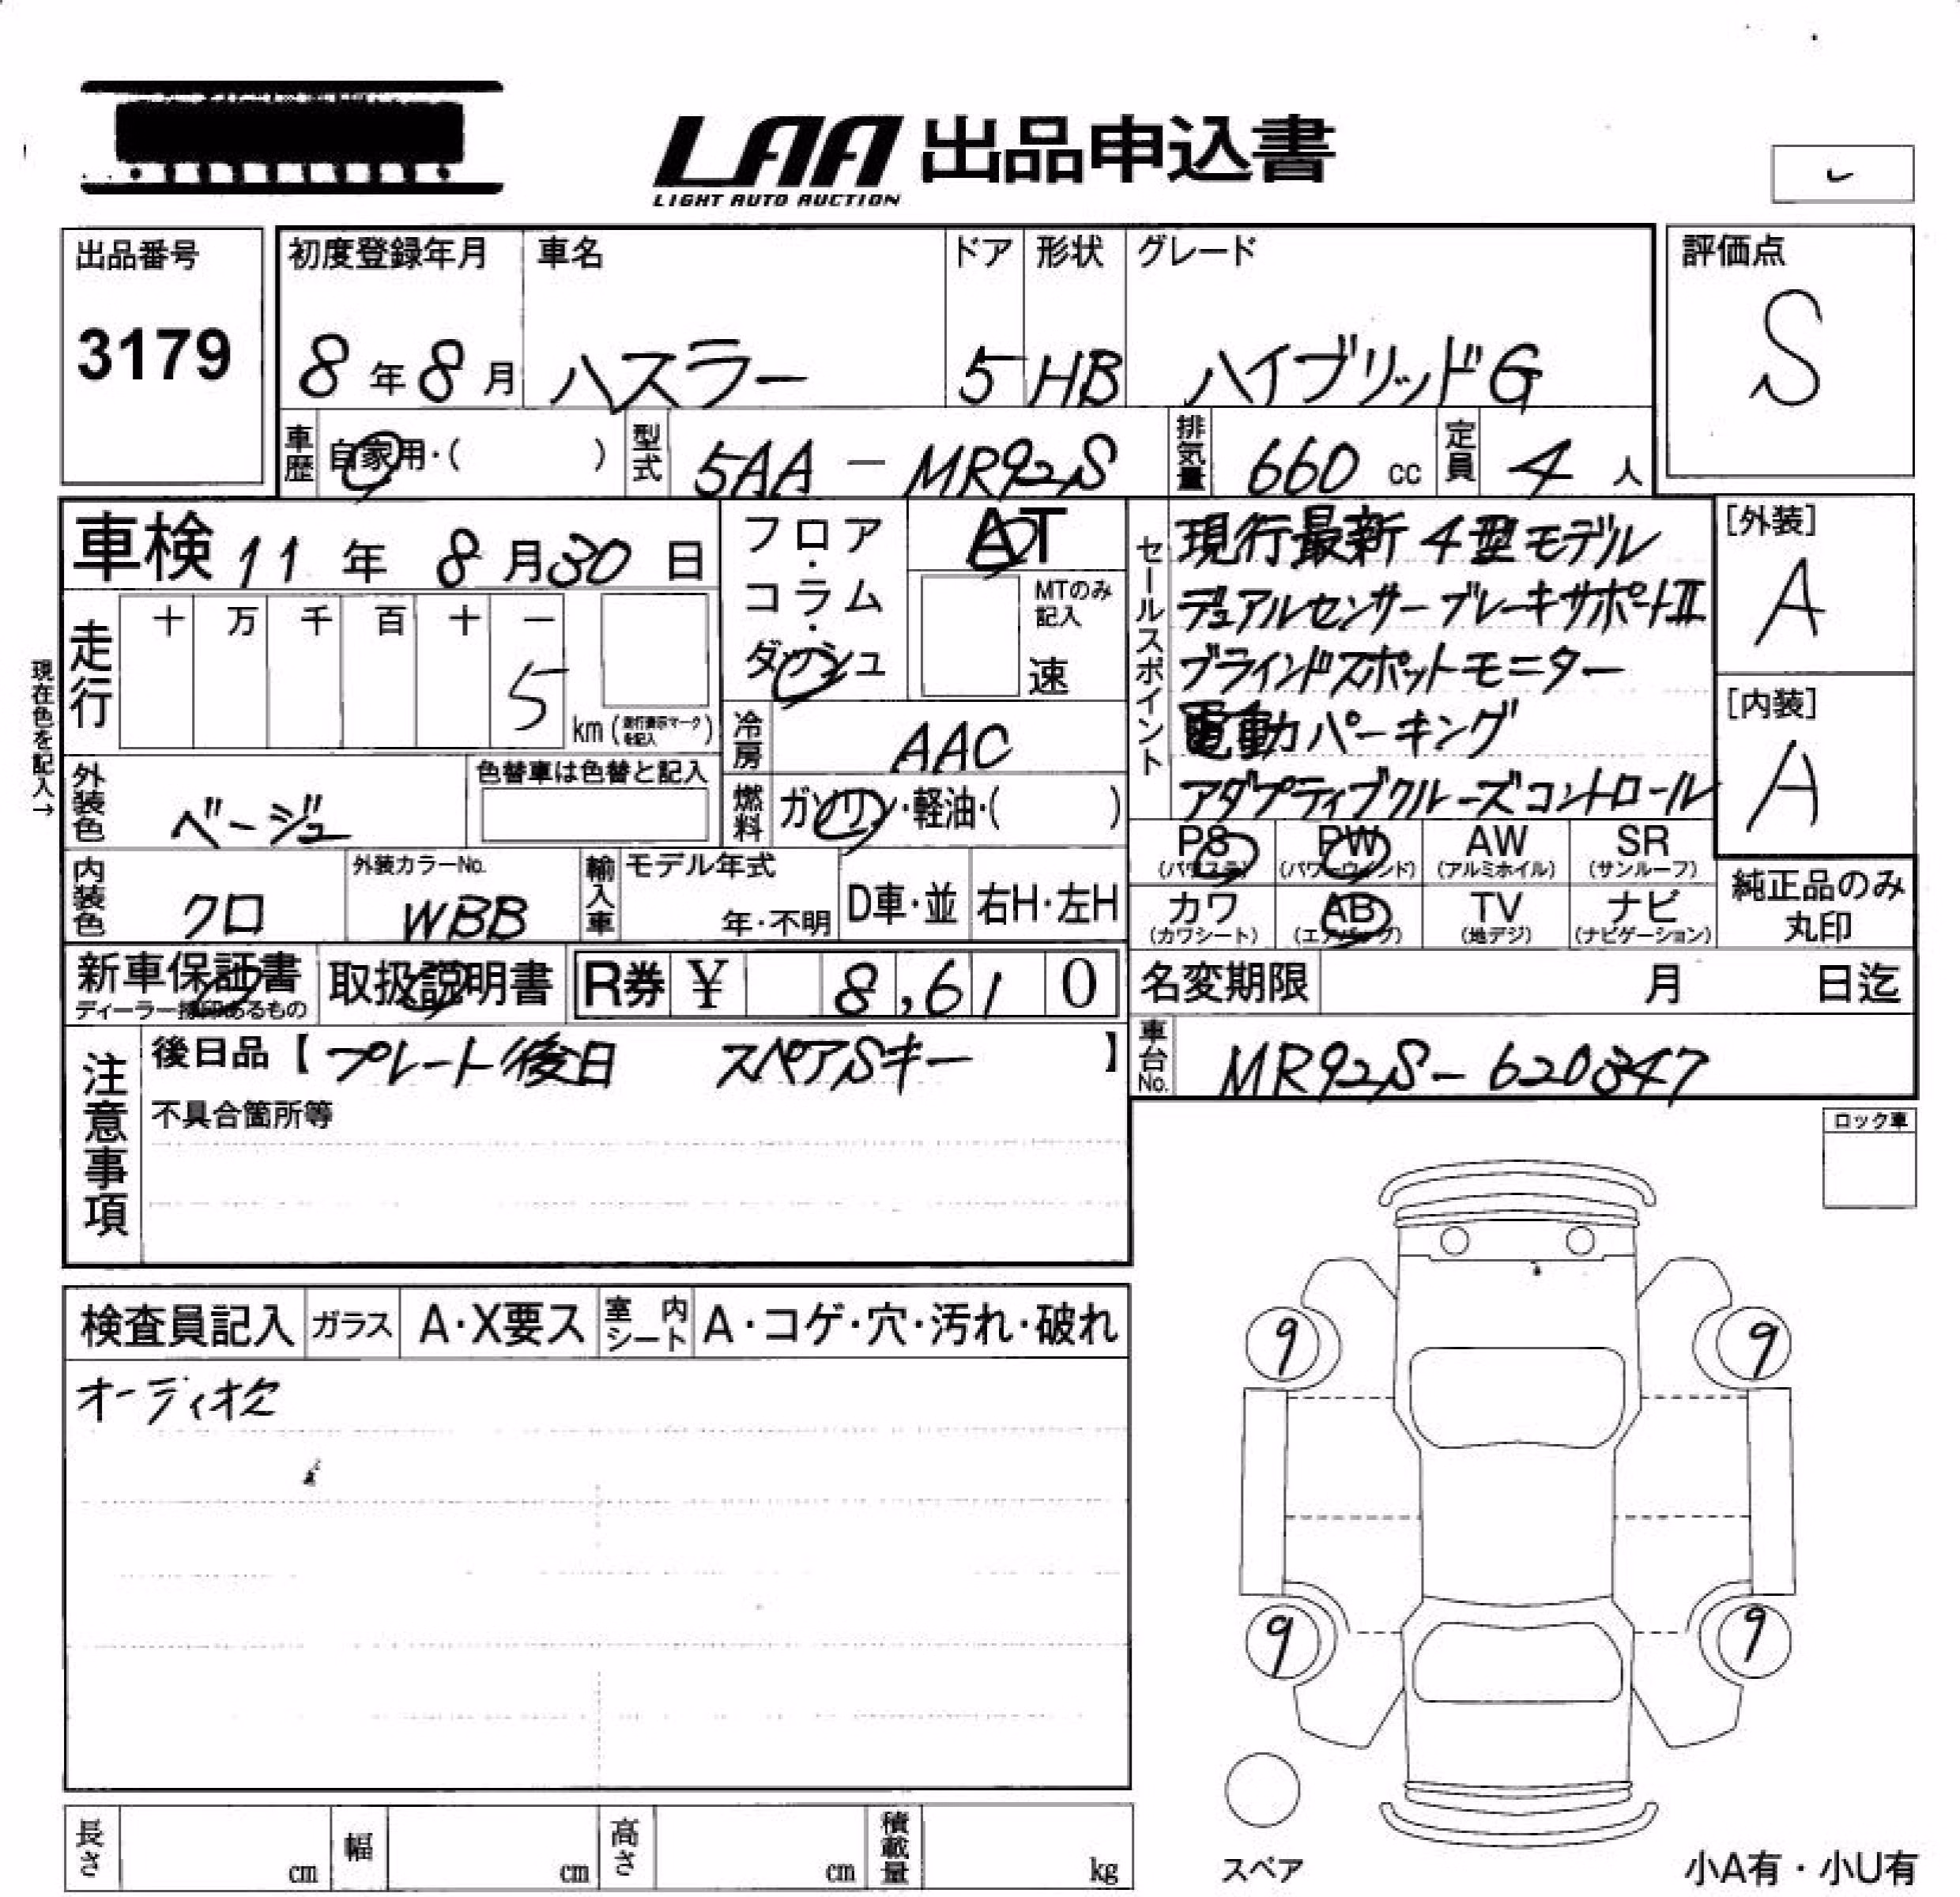 LAA 出品申込書
LIGHT AUTO AUCTION
出品番号
3179
初度登録年月
8年8月
車名
ハスラー
ドア
5
形状
HB
グレード
ハイブリッドG
評価点
S
車歴 自家用・( )
型式 5AA-MR92S
排気量 660 cc
定員 4 人
車検 11年 8月30日
フロア・コラム・ダッシュ
AT
MTのみ記入
速
セールスポイント
現行最新4型モデル
デュアルセンサーブレーキサポートⅡ
ブラインドスポットモニター
電動パーキング
アダプティブクルーズコントロール
[外装]
A
[内装]
A
現在色を記入→
走行
十 万 千 百 十 一
5
km(走行表示マークを記入)
冷房 AAC
外装色 ベージュ
色替車は色替と記入
燃料 ガソリン・軽油・( )
PS (パワステ)
PW (パワーウインド)
AW (アルミホイル)
SR (サンルーフ)
内装色 クロ
外装カラーNo. WBB
輸入車
モデル年式
年・不明
D車・並
右H・左H
カワ (カワシート)
AB (エアバッグ)
TV (地デジ)
ナビ (ナビゲーション)
純正品のみ丸印
新車保証書
ディーラー捺印あるもの
取扱説明書
R券 ¥ 8,610
名変期限 月 日迄
注意事項
後日品【プレート後日 スペアSキー】
不具合箇所等
車台No. MR92S-620347
ロック車
検査員記入
ガラス A・X要ス
室内シート A・コゲ・穴・汚れ・破れ
オーディオ欠
9
9
9
9
スペア
長さ cm
幅 cm
高さ cm
積載量 kg
小A有・小U有